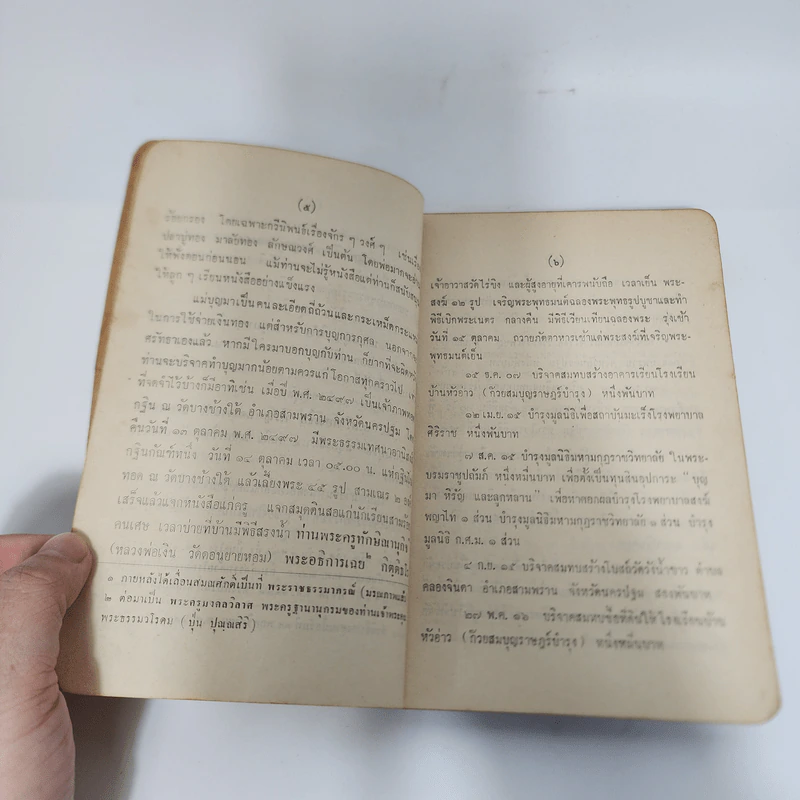 (๕)
ร้อยกรอง โดยเฉพาะกวีนิพนธ์เรื่องจักร ๆ วงศ์ ๆ เช่น
ปลาบู่ทอง มาลัยทอง ลักษณวงศ์ เป็นต้น โดยพ่อมาก
ให้ฟังตอนก่อนนอน แม้ท่านจะไม่รู้หนังสือแต่ท่านก็สนับ
ให้ลูก ๆ เรียนหนังสืออย่างแข็งแรง
แม่บุญมาเป็นคนละเอียดถี่ถ้วนและกระเหม็ดกระแหม่
ในการใช้จ่ายเงินทอง แต่สำหรับการบุญการกุศล นอกจาก
ศรัทธาเองแล้ว หากมีใครมาบอกบุญกับท่าน ก็ยากที่จะผิด
ท่านจะบริจาคทำบุญมากน้อยตามควรแก่โอกาสทุกคราวไป
ที่จดจำไว้บ้างก็มีอาทิเช่น เมื่อปี พ.ศ. ๒๔๙๗ เป็นเจ้าภาพทอด
กฐิน ณ วัดบางช้างใต้ อำเภอสามพราน จังหวัดนครปฐม
คืนวันที่ ๑๓ ตุลาคม พ.ศ. ๒๔๙๗ มีพระธรรมเทศนาอานิสงส์
กฐินกัณฑ์หนึ่ง วันที่ ๑๔ ตุลาคม เวลา ๐๕.๐๐ น. แห่กฐิน
ทอด ณ วัดบางช้างใต้ แล้วเลี้ยงพระ ๔๕ รูป สามเณร ๒
เสร็จแล้วแจกหนังสือแก่ครู แจกสมุดดินสอแก่นักเรียน
คนเศษ เวลาบ่ายที่บ้านมีพิธีสรงน้ำ ท่านพระครูทักษิณานุกิจ
(หลวงพ่อเงิน วัดดอนยายหอม) พระอธิการเฉย๒ กิตฺติ
๑ ภายหลังได้เลื่อนสมณศักดิ์เป็นที่ พระราชธรรมาภรณ์ (มรณภาพ
๒ ต่อมาเป็น พระครูมาลดวิลาศ พระครูฐานานุกรมของท่านเจ้าพระคุณ
พระธรรมวโรดม (ปุ่น ปุณฺณสิริ)
(๖)
เจ้าอาวาสวัดไร่ขิง และผู้สูงอายุที่เคารพนับถือ เวลาเย็น พระ-
สงฆ์ ๑๒ รูป เจริญพระพุทธมนต์ฉลองพระพุทธรูปบูชาและทำ
พิธีเบิกพระเนตร กลางคืน มีพิธีเวียนเทียนฉลองพระ รุ่งเช้า
วันที่ ๑๕ ตุลาคม ถวายภัตตาหารเช้าแด่พระสงฆ์ที่เจริญพระ-
พุทธมนต์เย็น
๑๕ ธ.ค. ๐๗ บริจาคสมทบสร้างอาคารเรียนโรงเรียน
บ้านหัวอ่าว (ก๊วยสมบุญราษฎร์บำรุง) หนึ่งพันบาท
๑๒ เม.ย. ๑๕ บำรุงมูลนิธิเพื่อสถาบันมะเร็งโรงพยาบาล
ศิริราช หนึ่งพันบาท
๗ ส.ค. ๑๕ บำรุงมูลนิธิมหามกุฏราชวิทยาลัย ในพระ-
บรมราชูปถัมภ์ หนึ่งหมื่นบาท เพื่อตั้งเป็นทุนสินอุปการะ “ บุญ
มา หิรัญ และลูกหลาน ” เพื่อหาดอกผลบำรุงโรงพยาบาลสงฆ์
พญาไท ๑ ส่วน บำรุงมูลนิธิมหามกุฏราชวิทยาลัย ๑ ส่วน บำรุง
มูลนิธิ ก.ศ.ม. ๑ ส่วน
๔ ก.ย. ๑๕ บริจาคสมทบสร้างโบสถ์วัดวังน้ำขาว ตำบล
คลองจินดา อำเภอสามพราน จังหวัดนครปฐม สองพันบาท
๒๗ พ.ค. ๑๖ บริจาคสมทบซื้อที่ดินให้โรงเรียนบ้าน
หัวอ่าว (ก๊วยสมบุญราษฎร์บำรุง) หนึ่งหมื่นบาท